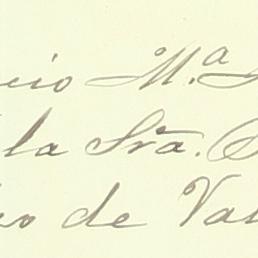 cio M.ª
la Sra.
o de Va